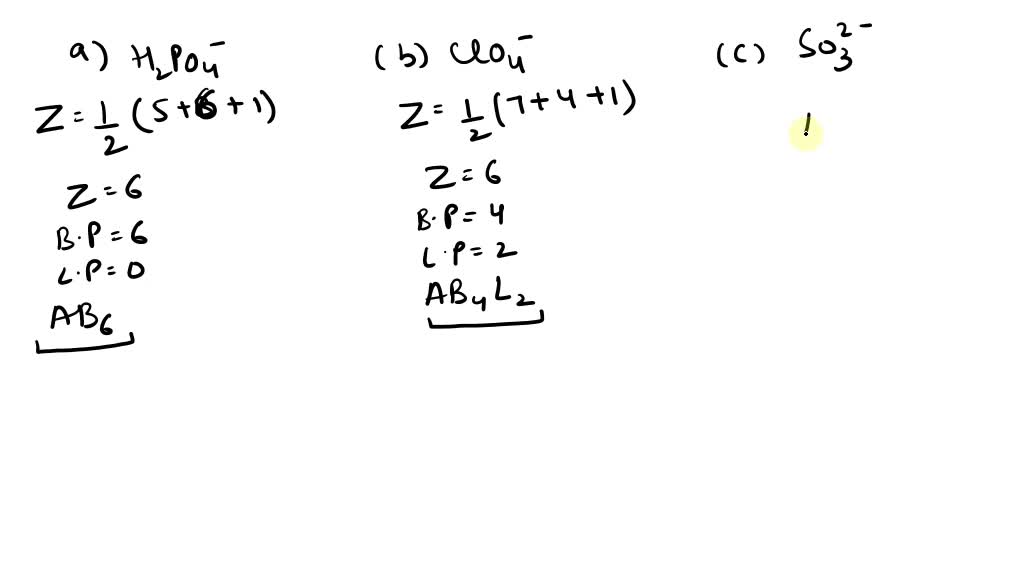 a) H₂PO₄⁻
Z = 1/2 (5+6+1)
Z = 6
B.P = 6
L.P = 0
AB₆
(b) ClO₄⁻
Z = 1/2 (7+4+1)
Z = 6
B.P = 4
L.P = 2
AB₄L₂
(c) SO₃²⁻
1